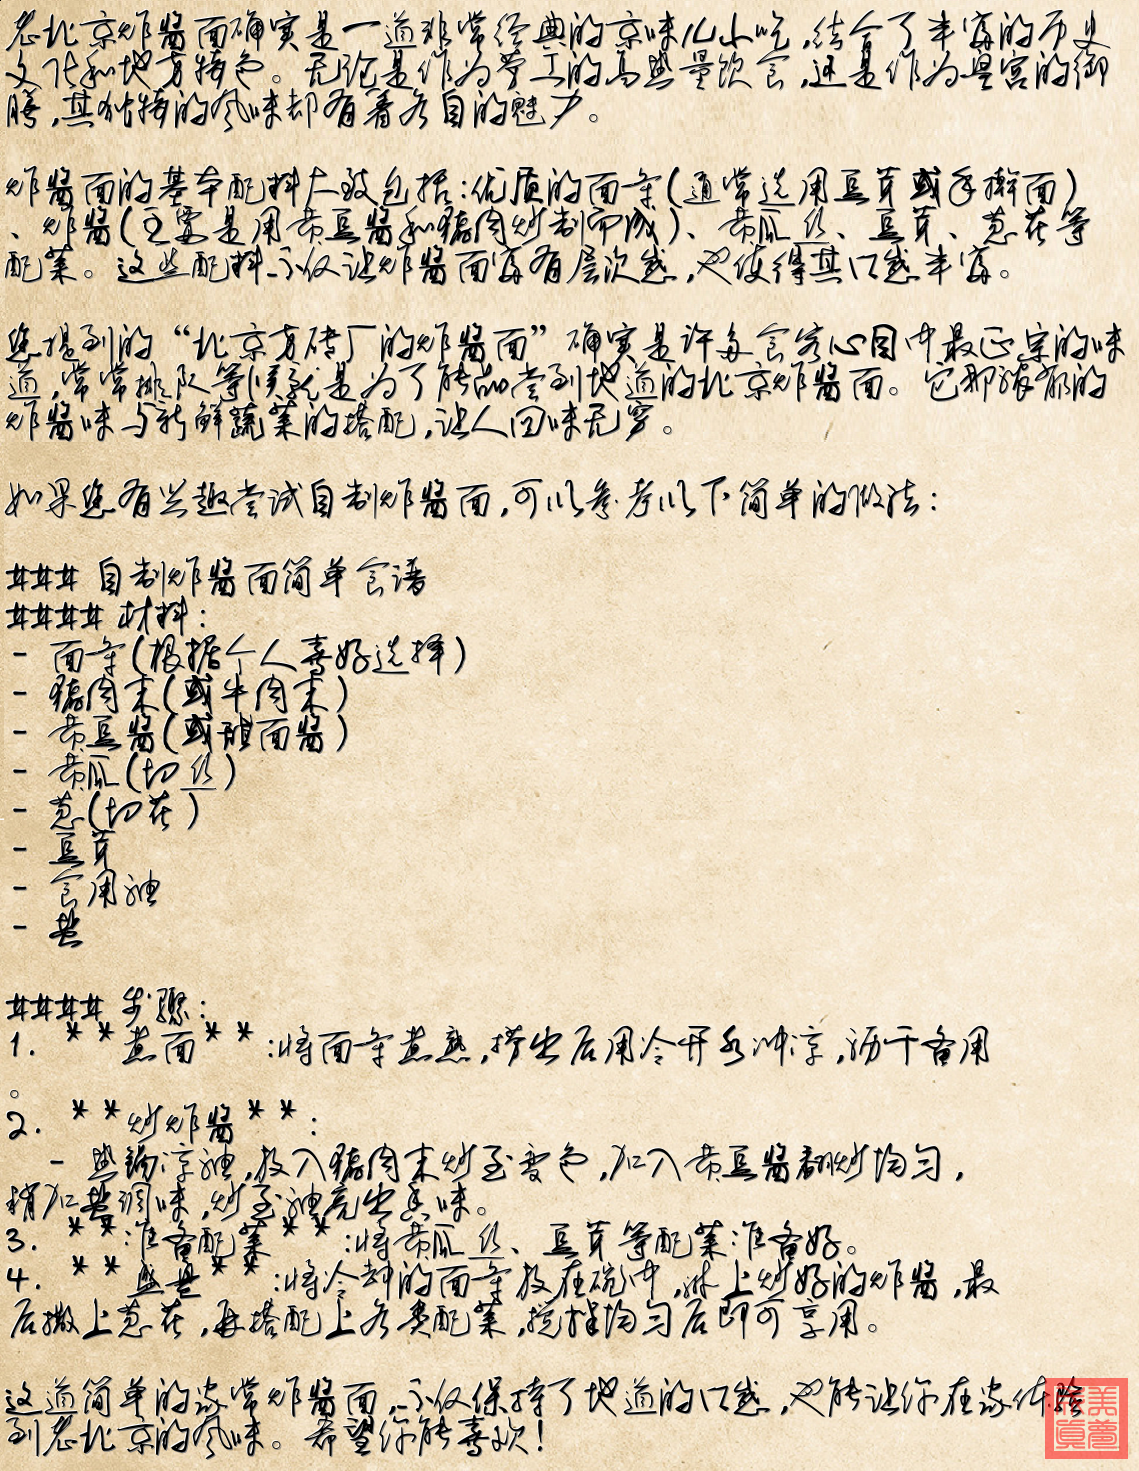 老北京炸酱面确实是一道非常经典的京味儿小吃,结合了丰富的历史
文化和地方特色。无论是作为劳工的高热量饮食,还是作为皇宫的御
膳,其独特的风味却有着各自的魅力。
炸酱面的基本配料大致包括:优质的面条(通常选用豆芽或手擀面)
、炸酱(主要是用黄豆酱和猪肉炒制而成)、黄瓜丝、豆芽、葱花等
配菜。这些配料不仅让炸酱面富有层次感,也使得其口感丰富。
您提到的“北京方砖厂的炸酱面”确实是许多食客心目中最正宗的味
道,常常排队等候就是为了能品尝到地道的北京炸酱面。它那浓郁的
炸酱味与新鲜蔬菜的搭配,让人回味无穷。
如果您有兴趣尝试自制炸酱面,可以参考以下简单的做法:
### 自制炸酱面简单食谱
#### 材料:
- 面条(根据个人喜好选择)
- 猪肉末(或牛肉末)
- 黄豆酱(或甜面酱)
- 黄瓜(切丝)
- 葱(切花)
- 豆芽
- 食用油
- 盐
#### 步骤:
1. **煮面**:将面条煮熟,捞出后用冷开水冲凉,沥干备用
。
2. **炒炸酱**:
- 热锅凉油,放入猪肉末炒至变色,加入黄豆酱翻炒均匀,
稍加盐调味,炒至油亮出香味。
3. **准备配菜**:将黄瓜丝、豆芽等配菜准备好。
4. **盘**:将冷却的面条放在碗中,淋上炒好的炸酱,最
后撒上葱花,再搭配上各类配菜,搅拌均匀后即可享用。
这道简单的家常炸酱面,不仅保持了地道的口感,也能让你在家体验
到老北京的风味。希望你能喜欢!